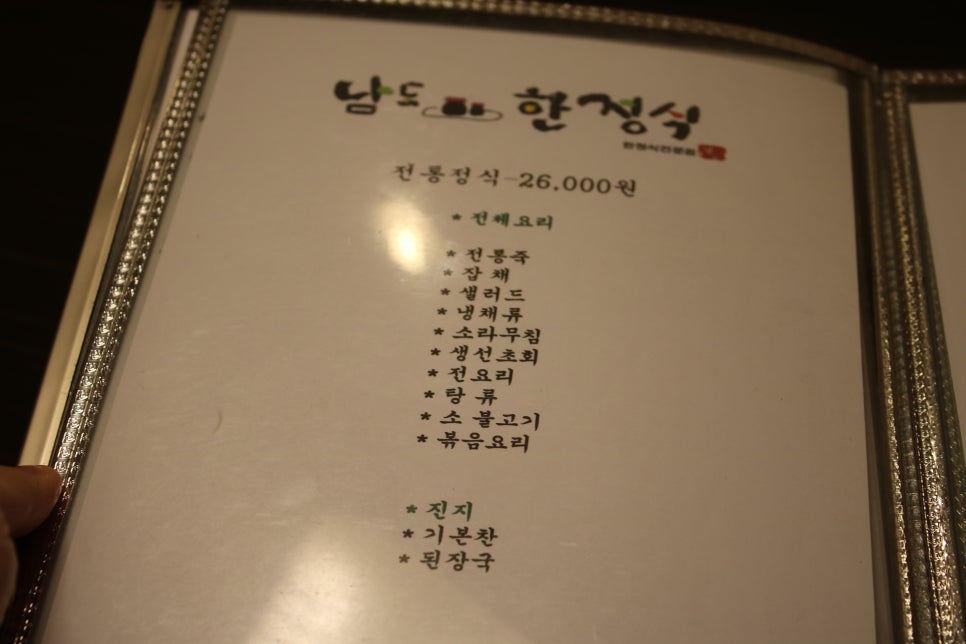 남도 한정식
한정식전문점
전통정식-26.000원
* 전체요리
* 전통죽
* 잡채
* 샐러드
* 냉채류
* 소라무침
* 생선초회
* 전요리
* 탕류
* 소 불고기
* 볶음요리
* 진지
* 기본찬
* 된장국